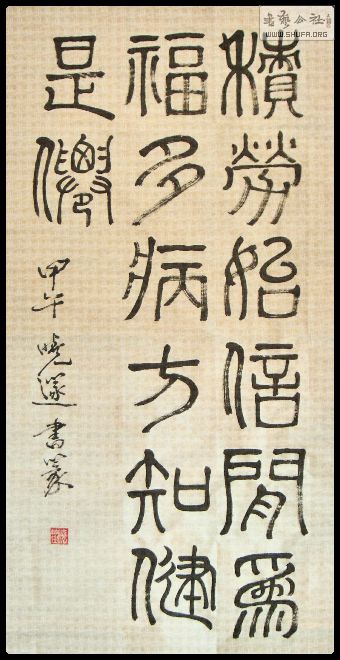 積勞始信閒爲
福多病方知健
是僊
甲午 曉遂書篆
書藝公社
WWW.SHUFA.ORG